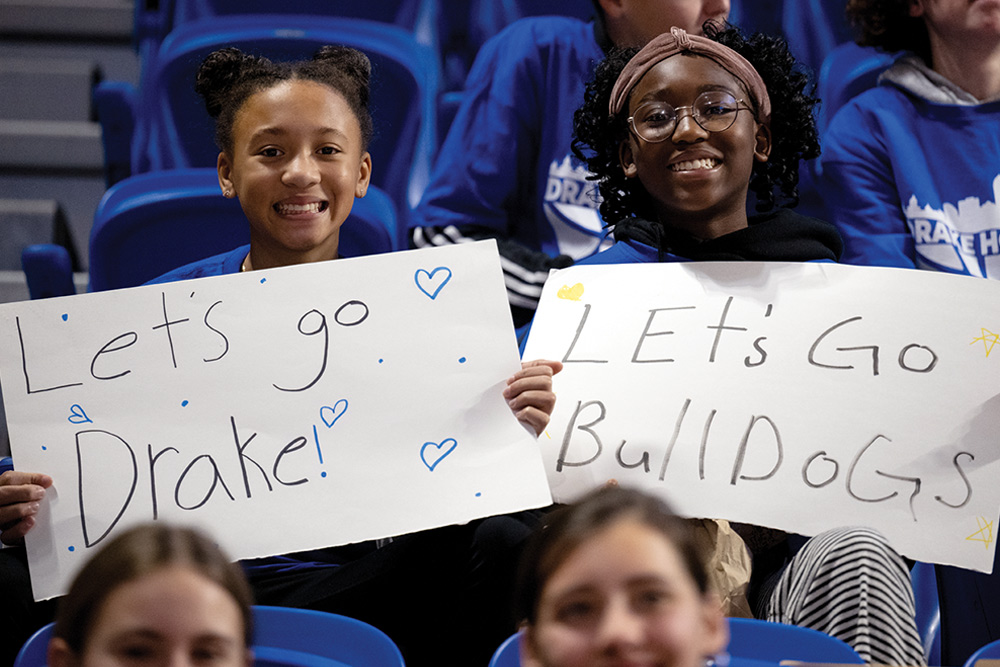 Let's go
Drake!
LEt's Go
BullDoGs
DRAK
DRAKE HO